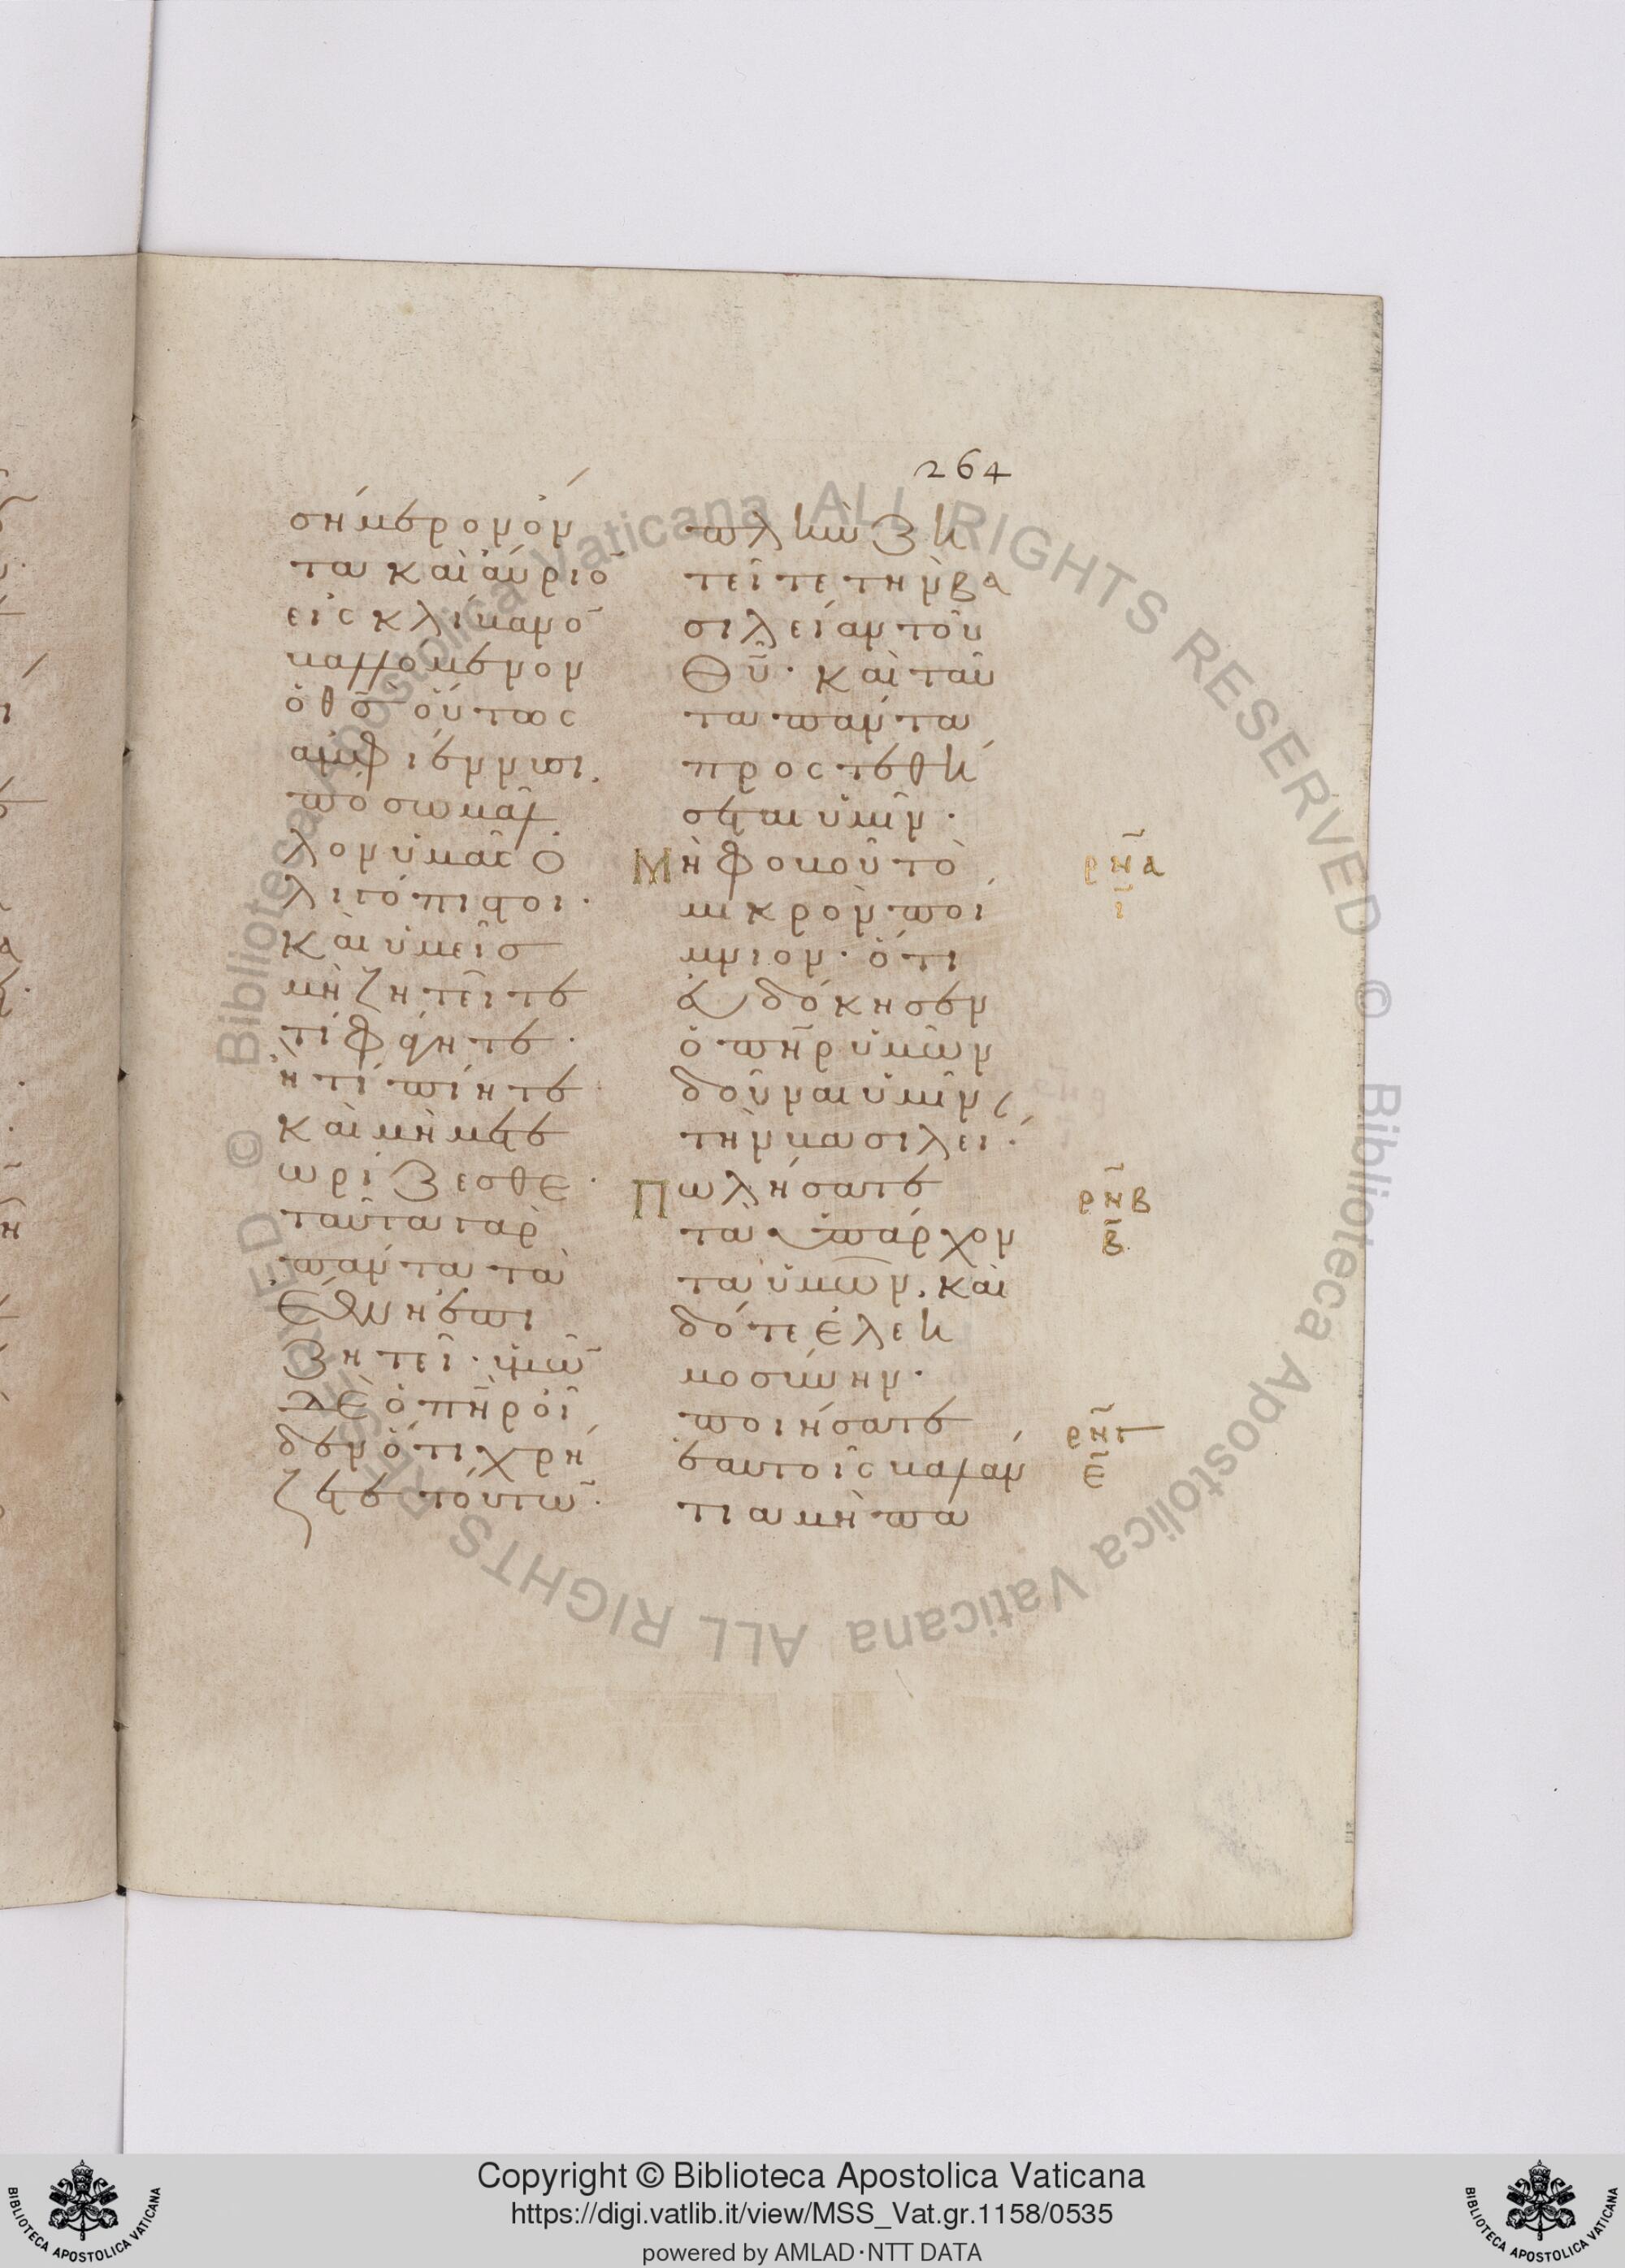 264
σήμερον ὄν
τα καὶ αὔριο̄
εἰς κλίβανο̄
βαλλόμενον
ὁ θσ̄ οὕτως
αμφιέννυσι.
πόσω μᾶλ
λον ὑμᾶς ὀ
λιγόπιστοι·
Καὶ ὑμεῖσ
μὴ ζητεῖτε
τί φάγητε·
ἢ τί πίητε·
καὶ μὴ μετε
ωρίζεσθε·
ταῦτα γὰρ
πάντα τὰ
ἔθνη ἐπι
ζητεῖ· ὑμῶ̄
δὲ ὁ πη̄ρ οἶ
δεν ὅτι χρή
ζετε τούτω̄·
πλὴν ζη
τεῖτε τὴν βα
σιλείαν τοῦ
θῡ· καὶ ταῦ
τα πάντα
προςτεθή
σεται ὑμῖν·
Μὴ φοβοῦ τὸ
μικρὸν ποί
μνιον· ὅτι
εὐδόκησεν
ὁ πη̄ρ ὑμῶν
δοῦναι ὑμῖν
τὴν βασιλεί·
Πωλήσατε
τὰ ὑπάρχον
τα ὑμῶν. καὶ
δότε ἐλεη
μοσύνην·
ποιήσατε
ἑαυτοῖς βαλάν
τια μὴ πα
ρν̄α
ι̅
ρν̄β
β̅
ρν̄γ
ε̅
Copyright © Biblioteca Apostolica Vaticana
https://digi.vatlib.it/view/MSS_Vat.gr.1158/0535
powered by AMLAD·NTT DATA
BIBLIOTECA APOSTOLICA VATICANA
BIBLIOTECA APOSTOLICA VATICANA
© Biblioteca Apostolica Vaticana ALL RIGHTS RESERVED © Biblioteca Apostolica Vaticana ALL RIGHTS RESERVED